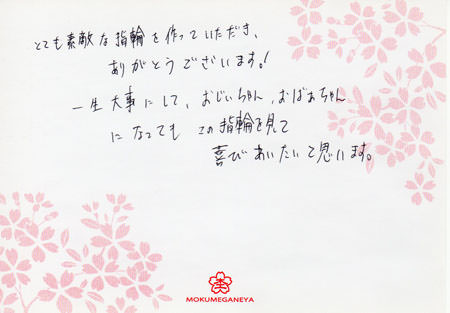 とても素敵な指輪を作っていただき、
ありがとうございます!
一生大事にして、おじいちゃん、おばぁちゃん
になっても この指輪を見て
喜びあいたいて思います。
杢
MOKUMEGANEYA